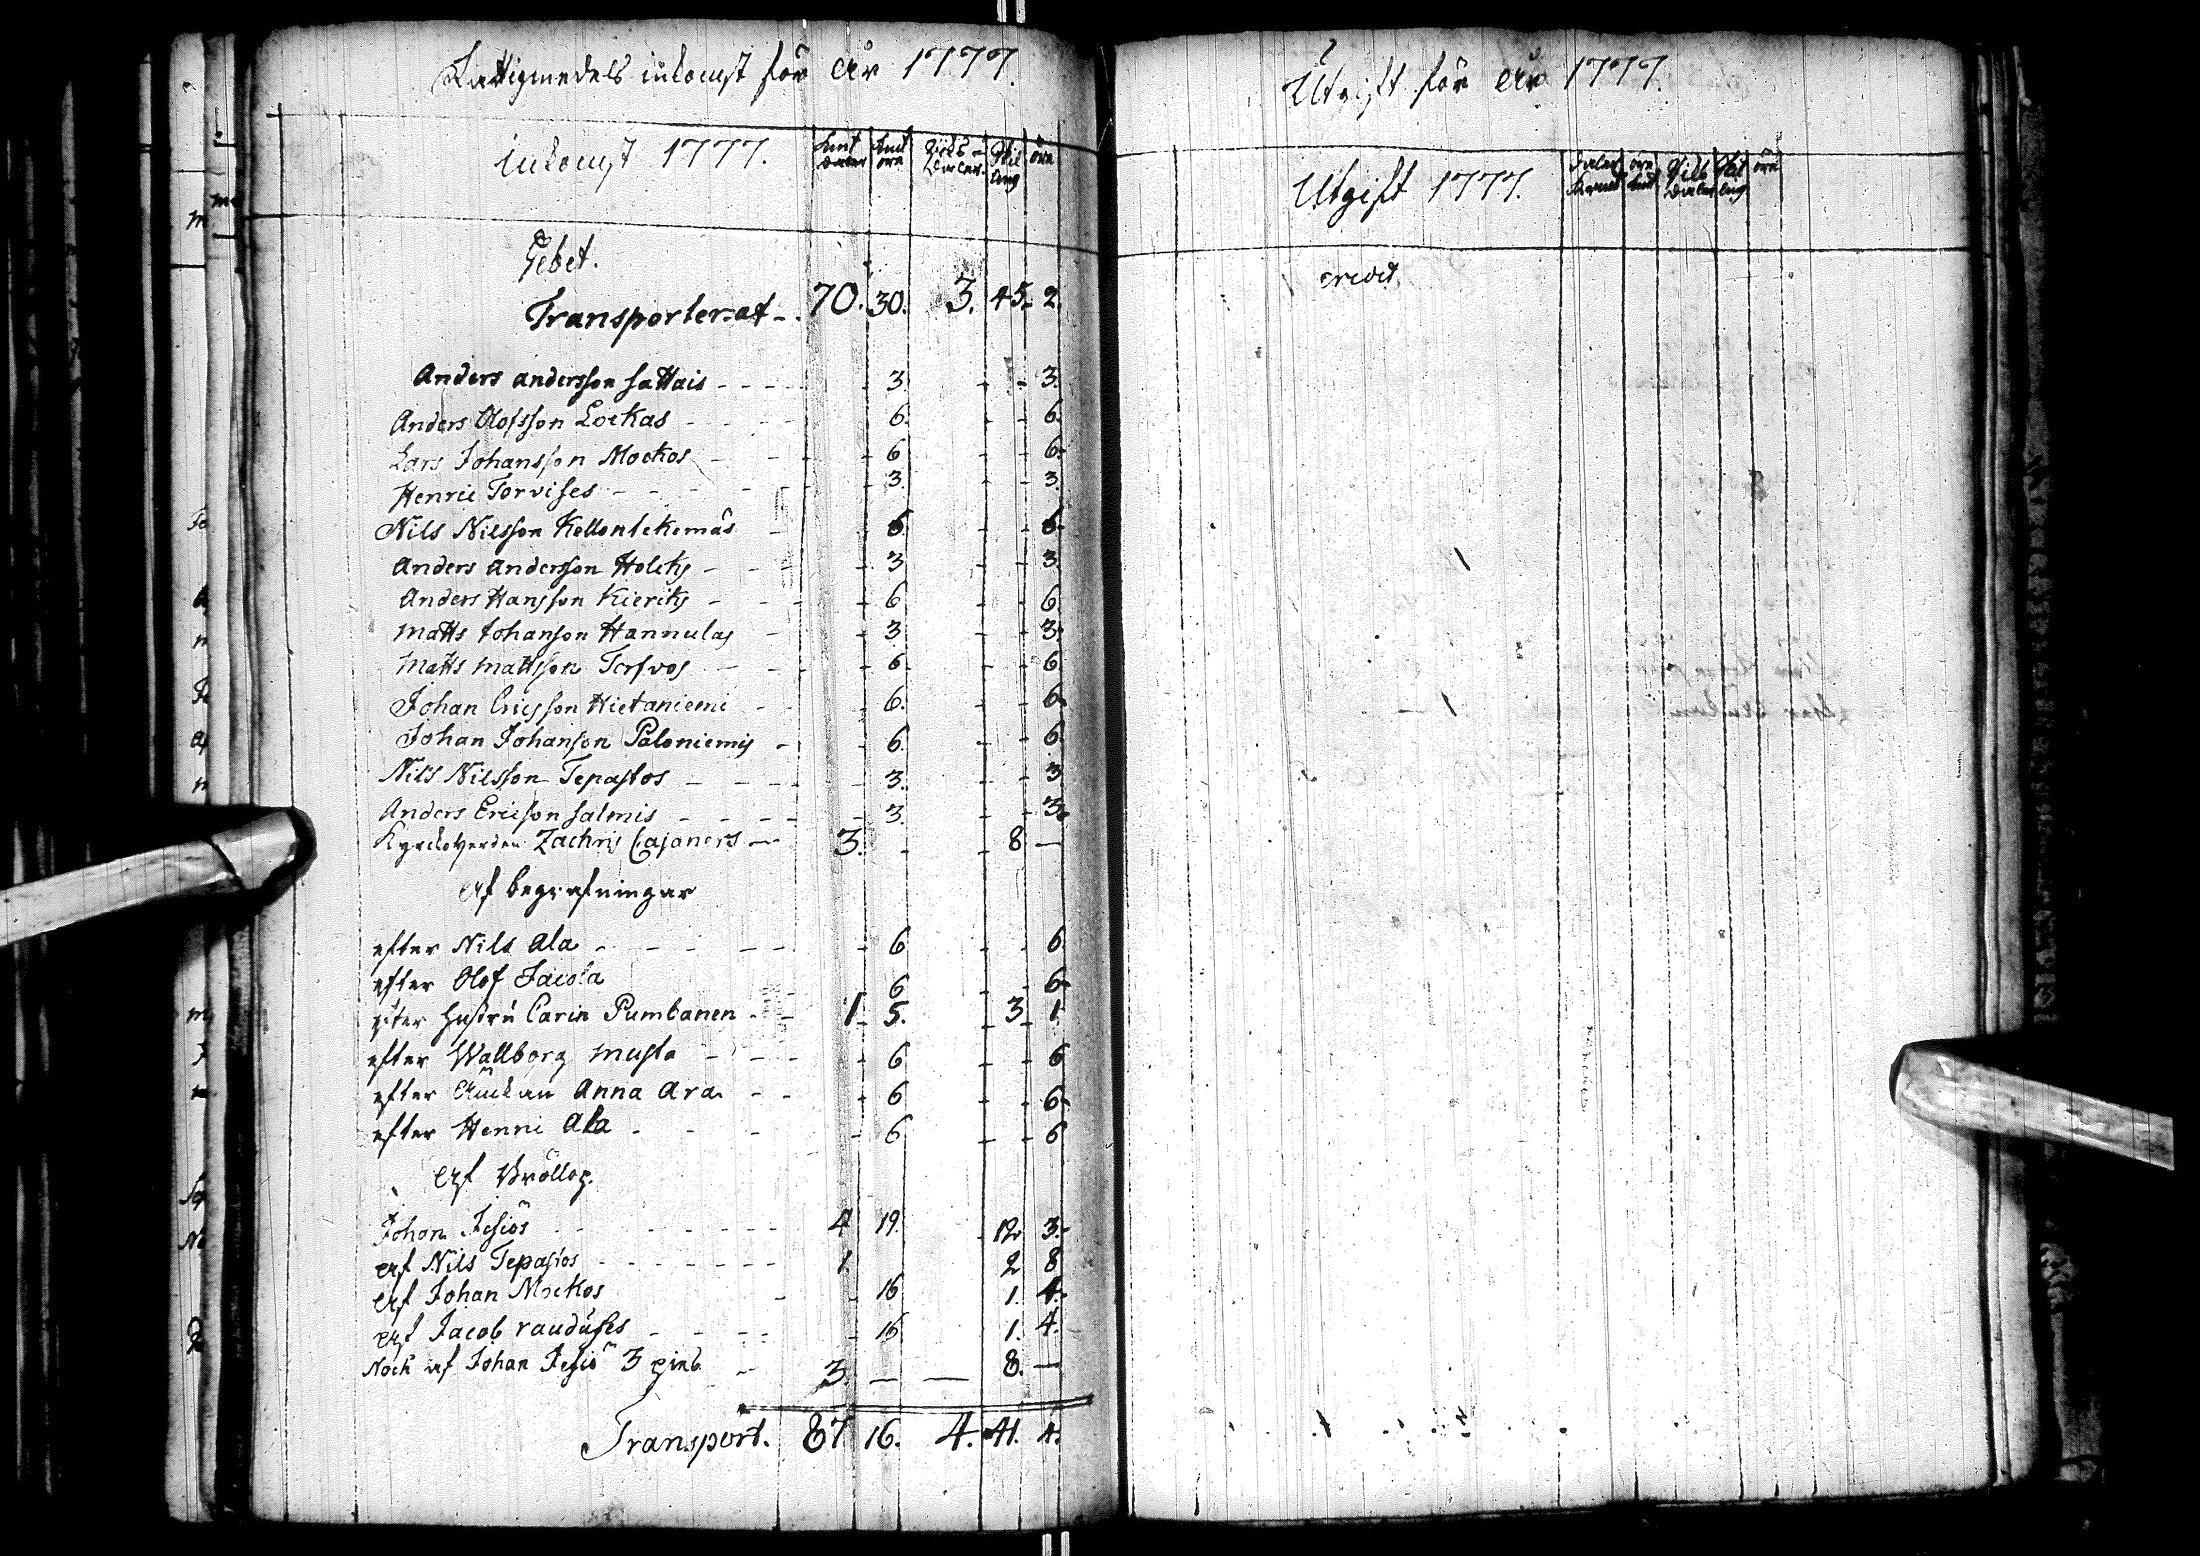 Fattigmedels inkomst för år 1777.
inkomst 1777. kmt daler kmt öre Riks-Daler. Skil ling öre
Debet.
Transporterat - . 70. 30. 3. 45. 2.
Anders andersson sattais - - - - 3 - - 3.
Anders Olofsson Lockas - - - - 6. - - 6.
Lars Johansson Mockos - - - - 6 - - 6.
Henric Torvises - - - - 3. - - 3.
Nils Nilsson - - 6 - - 6.
Anders Andersson Holcks - - - - 3 - - 3.
Anders Hansson Kieriks - - - - 6 - - 6.
Matts Johanson Hannulas - - 3 - - 3.
Matts Mattsson Torfvos - - - 6 - - 6
Johan Ericsson Hietaniemi - - - 6. - - 6.
Johan Johanson Paloniemis - - 6. - - 6
Nils Nilsson Tepastos - - - - 3. - - 3
Anders Ericson Salmis - - - - 3. - - 3.
Kyrckovärden Zachris Cajaners - - 3. - - 8 —
Af begrafningar
efter Nils Ala - - - - - 6 - - 6
efter Olof Jacola - 6 - - 6.
efter hustru Carin Pumbanen - - 1. 5. - 3. 1.
efter Wallborg Musta - - - - 6 - - 6
efter Änckan Anna Ara - - - 6 - - 6.
efter Henric Ala - - - - 6 - - 6
Af Bröllop.
Johan Jesiös - - - - 4 19. - 12. 3.
af Nils Tepastos - - - - 1. 2 8
af Johan Mockos - - 16 1. 4.
af Jacob raudüses - - - - 16 1. 4.
Noch af Johan Jesiö 3 - 3. — — 8. —
Transport. 87. 16. 4. 41. 4.
Utgift för år 1777.
Utgift 1777. Daler kmt öre kmt Riks Daler Skil ling öre
Credit.